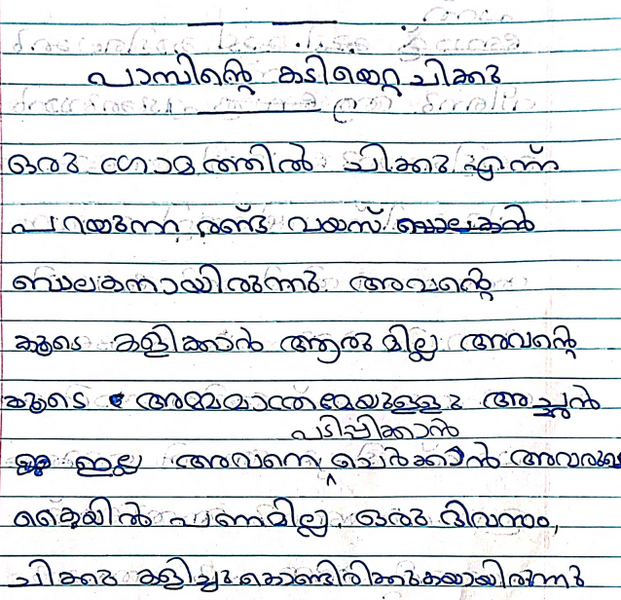 പാമ്പിന്റെ കടിയെറ്റ ചിക്കു
ഒരു ഗ്രാമത്തിൽ ചിക്കു എന്ന്
പറയുന്ന രണ്ട് വയസ് ബാലകൻ
ബാലകനായിരുന്നു. അവന്റെ
കൂടെ കളിക്കാൻ ആരുമില്ല അവന്റെ
കൂടെ അമ്മമാത്രമേയുള്ളു അച്ചൻ
പടിപ്പിക്കാൻ
ഇല്ല അവനെ ചെർക്കാൻ അവരുടെ
കൈയിൽ പണമില്ല. ഒരു ദിവസം,
ചിക്കു കളിച്ചുകൊണ്ടിരിക്കുകയായിരുന്നു